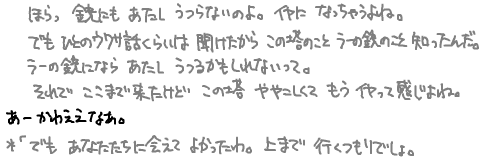 ほらっ 鏡にも あたし うつらないのよ。イヤに なっちゃうよね。
でも ひとのウワサ話くらいは 聞けたから この塔のこと ラーの鏡のこと 知ったんだ。
ラーの鏡になら あたし うつるかもしれないって。
それで ここまで来たけど この塔 ややこしくて もう イヤって感じよね。
あーかわええなぁ。
*「でも あなたたちに会えて よかったわ。上まで 行くつもりでしょ。